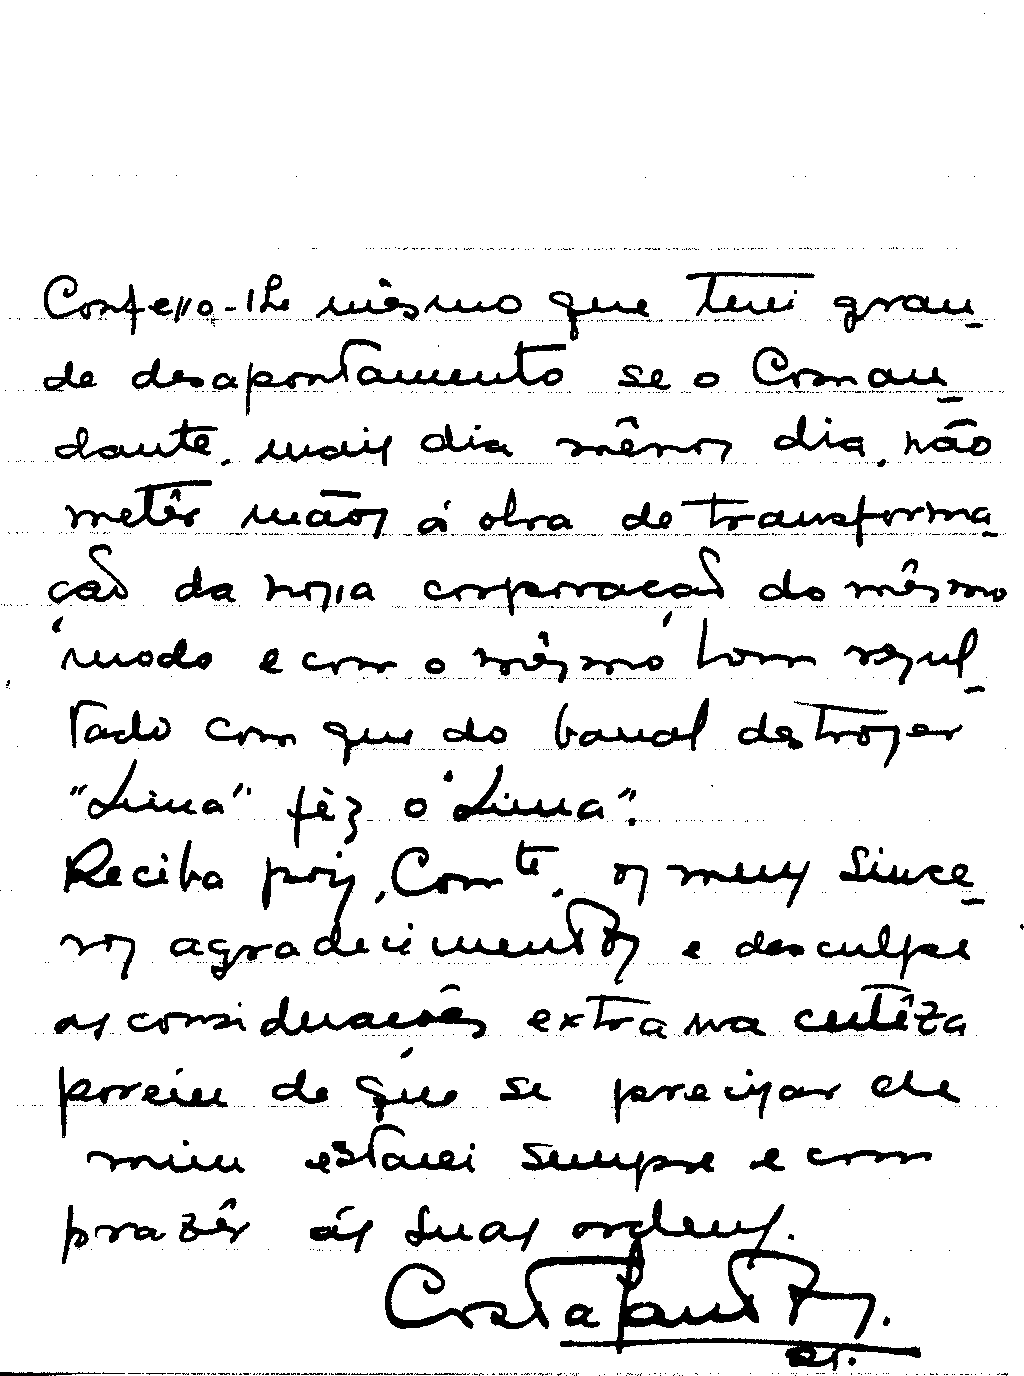 Confesso-lhe mêsmo que terei gran-
de desapontamento se o Coman-
dante, mais dia mênos dia, não
metêr mãos á obra de transforma-
ção da nossa corporação do mêsmo
modo e com o mêsmo bom resul-
tado com que do banal destroyer
"Lima" fêz o "Lima".
Receba pois, Comte, os meus since-
ros agradecimentos e desculpe
as considerações extra na certêza
porém de que se precisar de
mim estarei sempre e com
prazêr ás suas ordens.
Costa Santos.